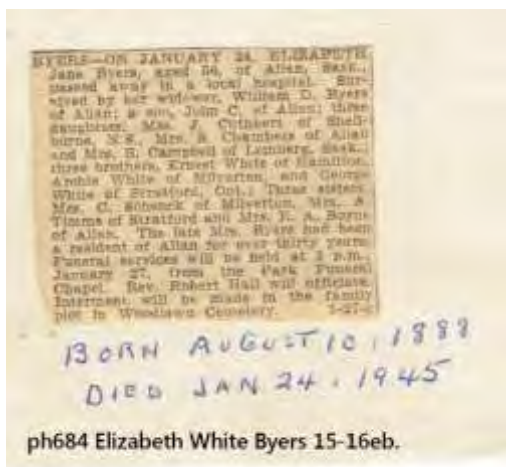 BYERS—ON JANUARY 24, ELIZABETH
Jane Byers, aged 56, of Allan, Sask.,
passed away in a local hospital. Sur-
vived by her widower, William D. Byers
of Allan; a son, John C. of Allan; three
daughters, Mrs. J. Cuthbert of Shell-
burne, N.S., Mrs. Chambers of Allan
and Mrs. Campbell of Lemberg, Sask.,
three brothers, Ernest White of Hamilton,
Archie White of Milverton, and George
White of Stratford, Ont.; Three sisters,
Mrs. C. Schenck of Milverton, Mrs. A
Timms of Stratford and Mrs. R. A. Borne
of Allan. The late Mrs. Byers had been
a resident of Allan for over thirty years.
Funeral services will be held at 2 p.m.,
January 27, from the Park Funeral
Chapel. Rev. Robert Hall will officiate.
Interment will be made in the family
plot in Woodlawn Cemetery.
BORN AUGUST 10, 1888
DIED JAN 24, 1945
ph684 Elizabeth White Byers 15-16eb.